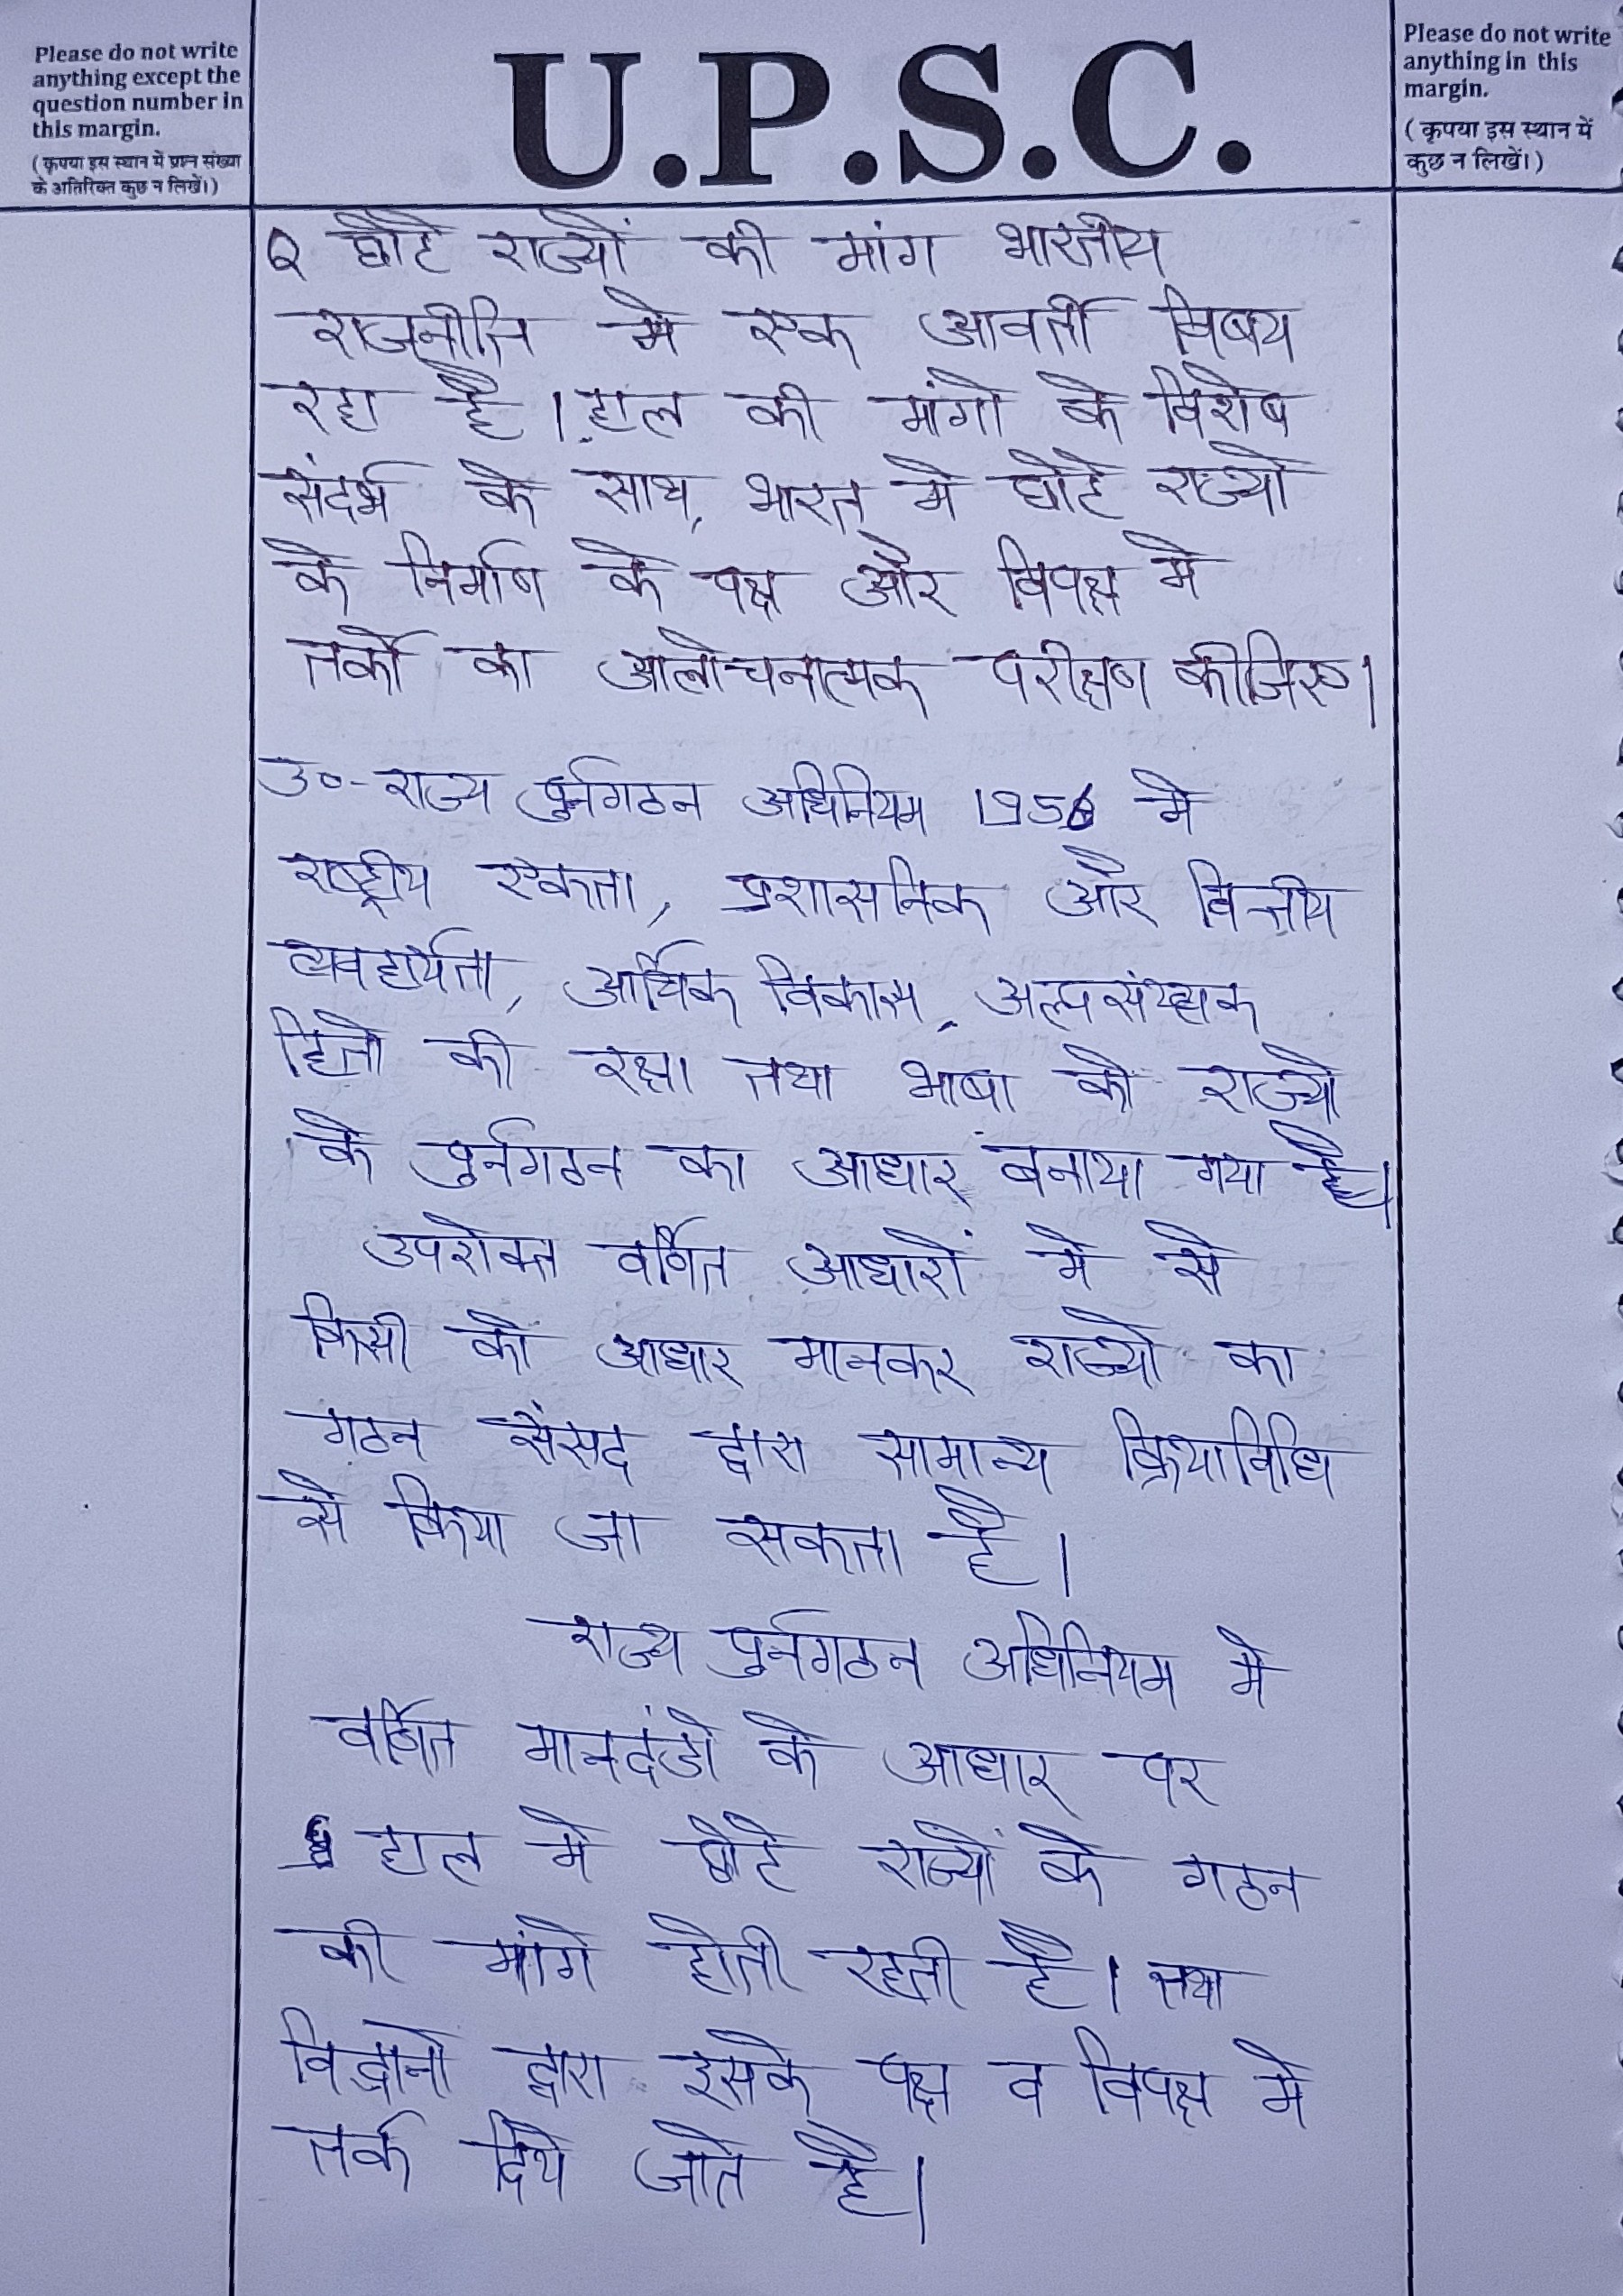 Please do not write
anything except the
question number in
this margin.
(कृपया इस स्थान में प्रश्न संख्या
के अतिरिक्त कुछ न लिखें।)
U.P.S.C.
Please do not write
anything in this
margin.
(कृपया इस स्थान में
कुछ न लिखें।)
Q छोटे राज्यों की मांग भारतीय
राजनीति मे एक आवर्ती विषय
रहा है। हाल की मांगो के विशेष
संदर्भ के साथ, भारत मे छोटे राज्यो
के निर्माण के पक्ष और विपक्ष मे
तर्को का आलोचनात्मक परीक्षण कीजिए।
उ०- राज्य पुर्नगठन अधिनियम 1956 मे
राष्ट्रीय एकता, प्रशासनिक और वित्तीय
व्यवहार्यता, आर्थिक विकास, अल्पसंख्यक
हितो की रक्षा तथा भाषा को राज्यो
के पुर्नगठन का आधार बनाया गया है।
उपरोक्त वर्णित आधारों मे से
किसी को आधार मानकर राज्यो का
गठन संसद द्वारा सामान्य क्रियाविधि
से किया जा सकता है।
राज्य पुर्नगठन अधिनियम मे
वर्णित मानदंडो के आधार पर
हाल मे छोटे राज्यों के गठन
की मांगे होती रहती है। तथा
विद्वानो द्वारा इसके पक्ष व विपक्ष मे
तर्क दिये जाते है।